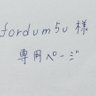 fordum5u 様
専用ページ